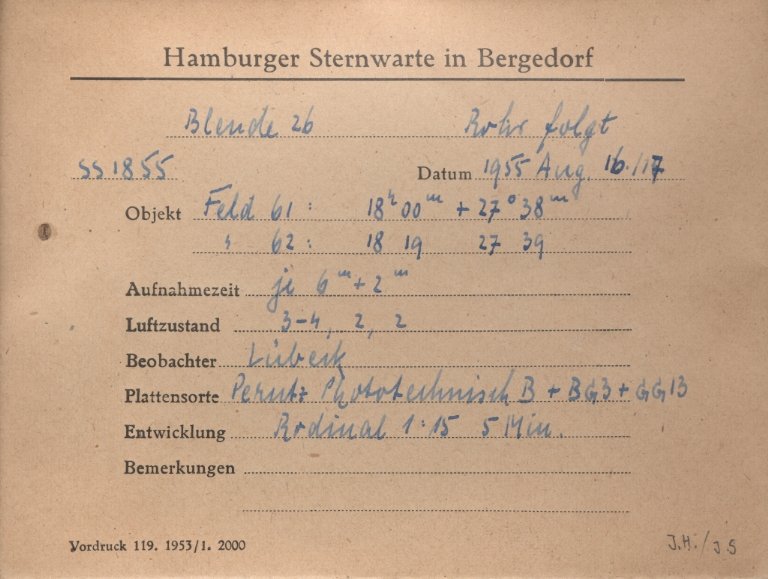 Hamburger Sternwarte in Bergedorf
Blende 26 Rohr folgt
SS 1855 Datum 1955 Aug. 16./17
Objekt Feld 61 : 18h 00m + 27° 38m
" 62 : 18 19 27 39
Aufnahmezeit je 6m + 2m
Luftzustand 3-4, 2, 2
Beobachter Lübeck
Plattensorte Perutz Phototechnisch B + BG3 + GG13
Entwicklung Rodinal 1:15 5 Min.
Bemerkungen
Vordruck 119. 1953/1. 2000 J.H./J S